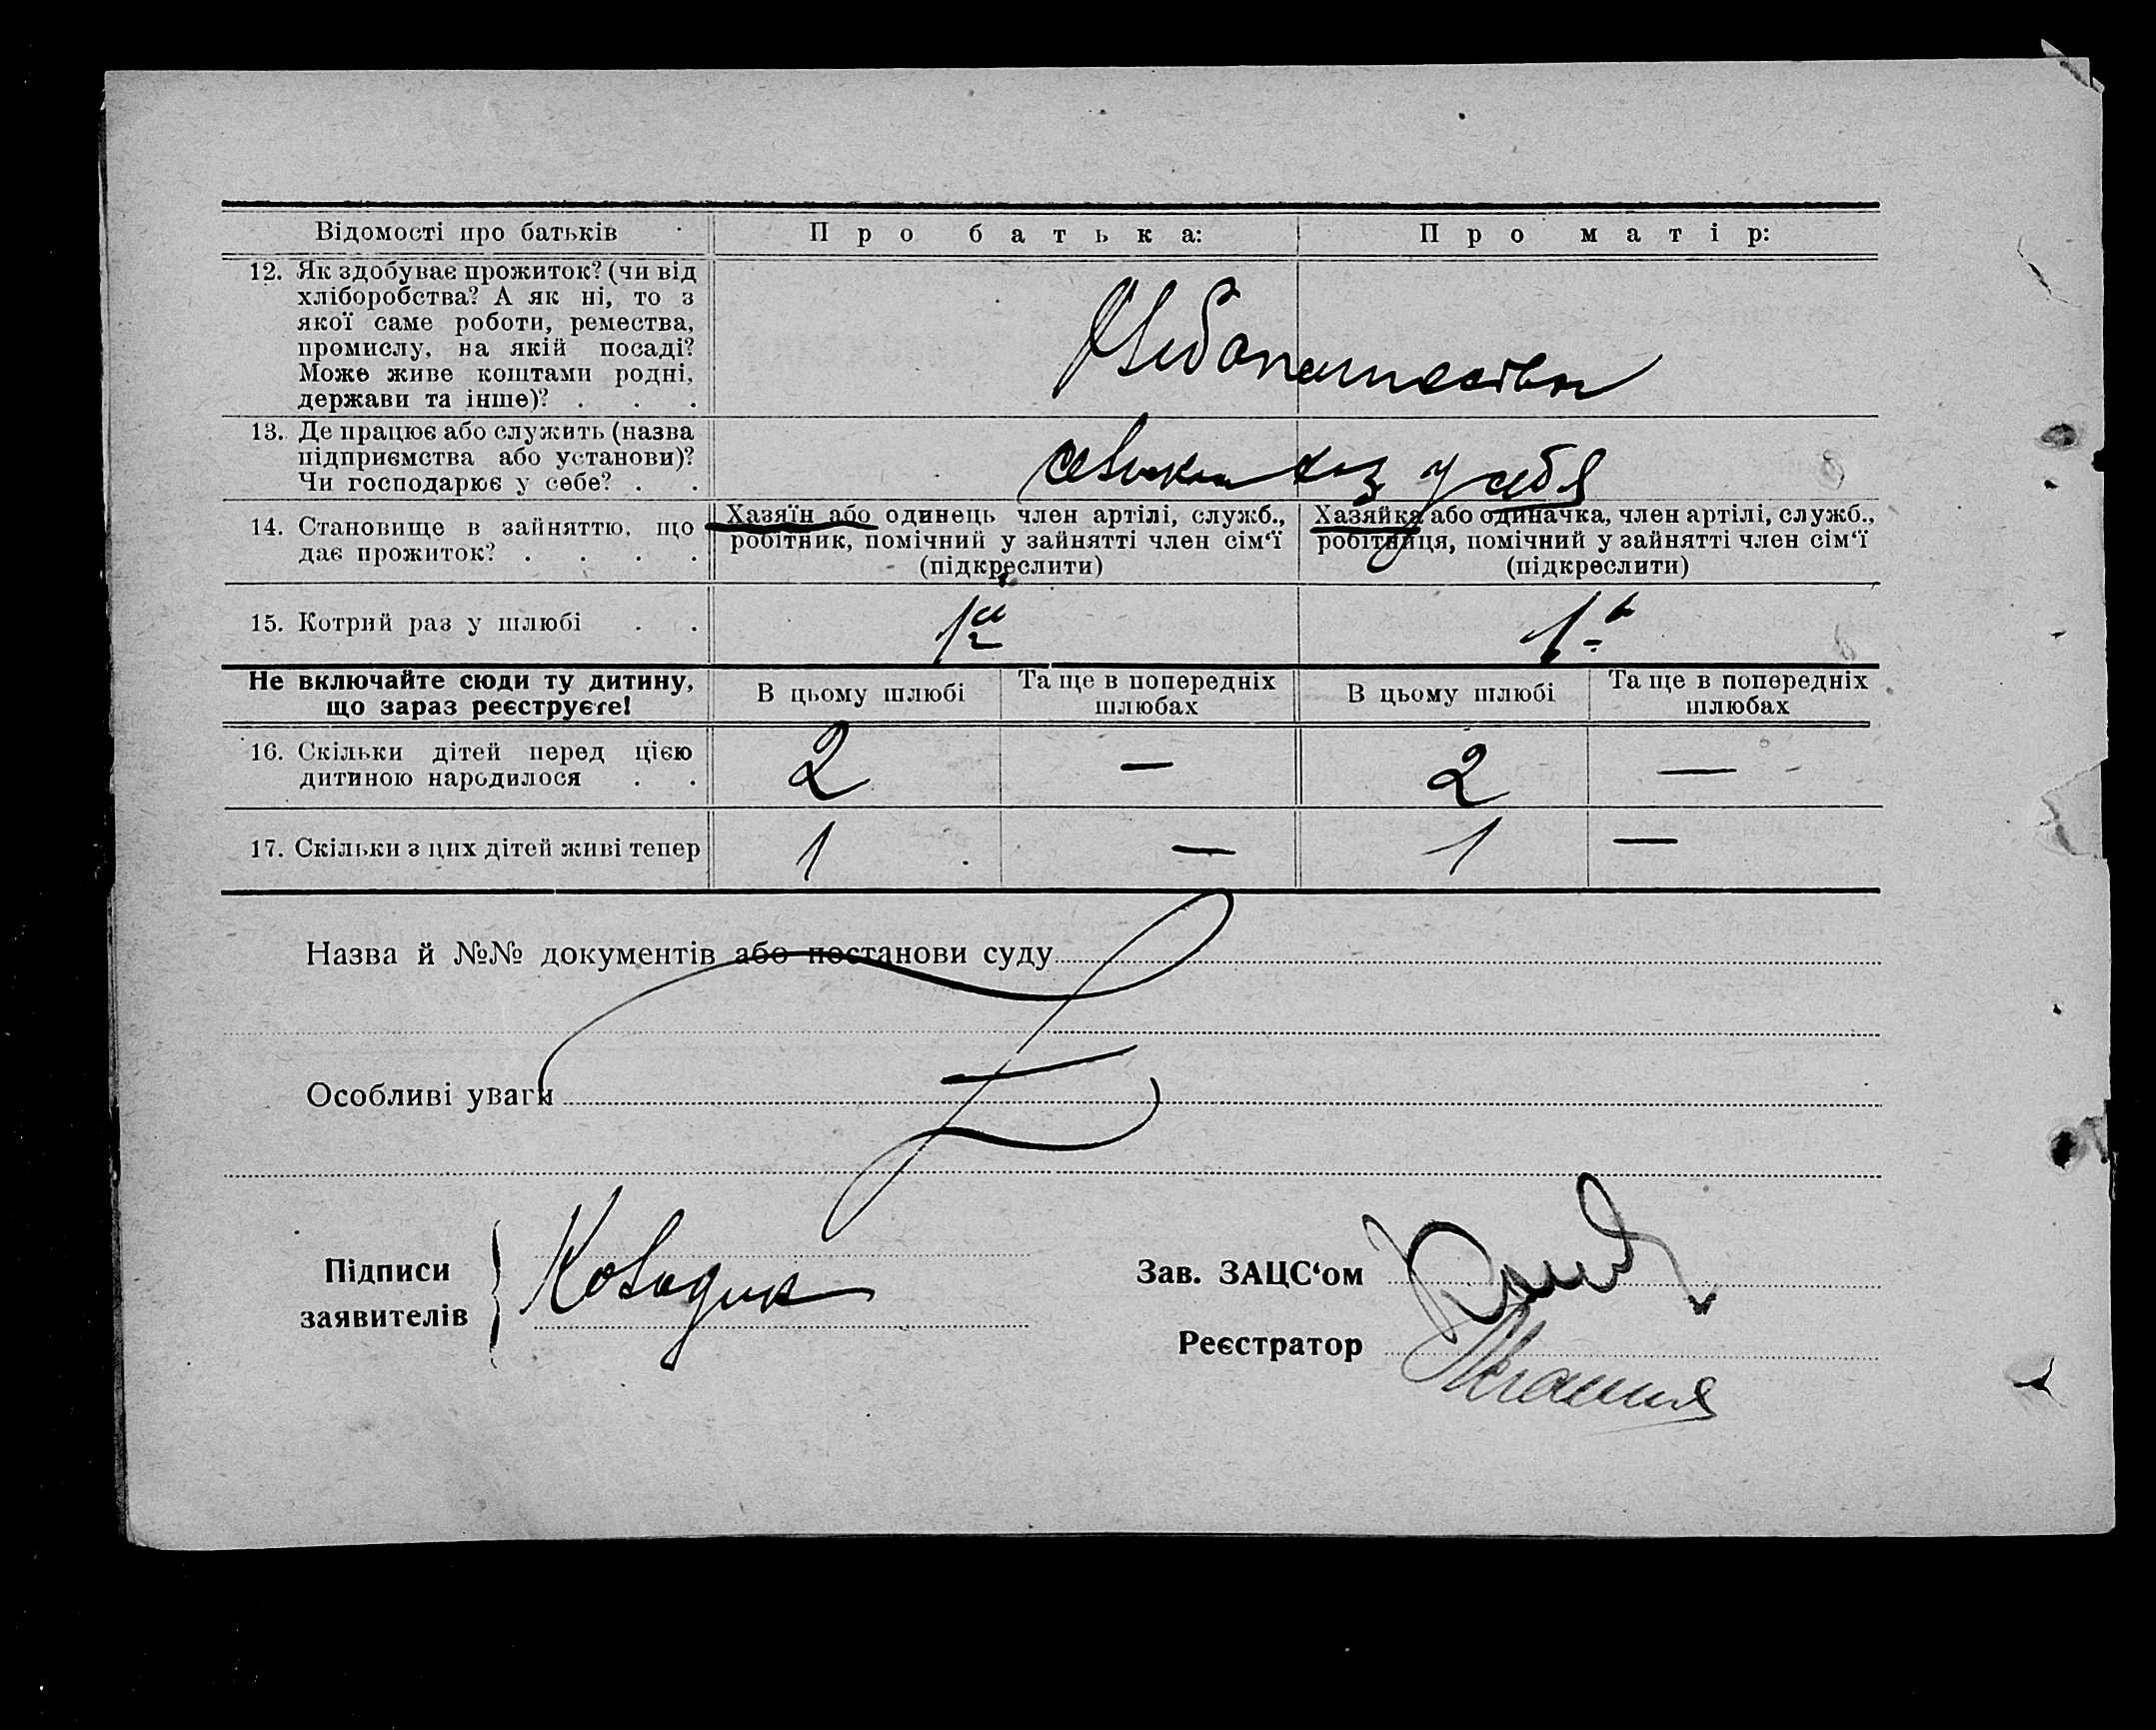 Відомості про батьків
Про батька:
Про матір:
12. Як здобуває прожиток? (чи від
хліборобства? А як ні, то з
якої саме роботи, ремества,
промислу, на якій посаді?
Може живе коштами родні,
держави та інше)? . . .
Хлебопашество
13. Де працює або служить (назва
підприємства або установи)?
Чи господарює у себе? . .
у себя
14. Становище в зайняттю, що
дає прожиток? . . . .
Хазяїн або одинець член артілі, служб.,
робітник, помічний у зайнятті член сім'ї
(підкреслити)
Хазяйка або одиначка, член артілі, служб.,
робітниця, помічний у зайнятті член сім'ї
(підкреслити)
15. Котрий раз у шлюбі . .
1й
1й
Не включайте сюди ту дитину,
що зараз реєструєте!
В цьому шлюбі
Та ще в попередніх
шлюбах
В цьому шлюбі
Та ще в попередніх
шлюбах
16. Скільки дітей перед цією
дитиною народилося . .
2 — 2 —
17. Скільки з цих дітей живі тепер
1 — 1 —
Назва й №№ документів або постанови суду
Особливі уваги
Підписи
заявителів
Зав. ЗАЦС'ом
Реєстратор